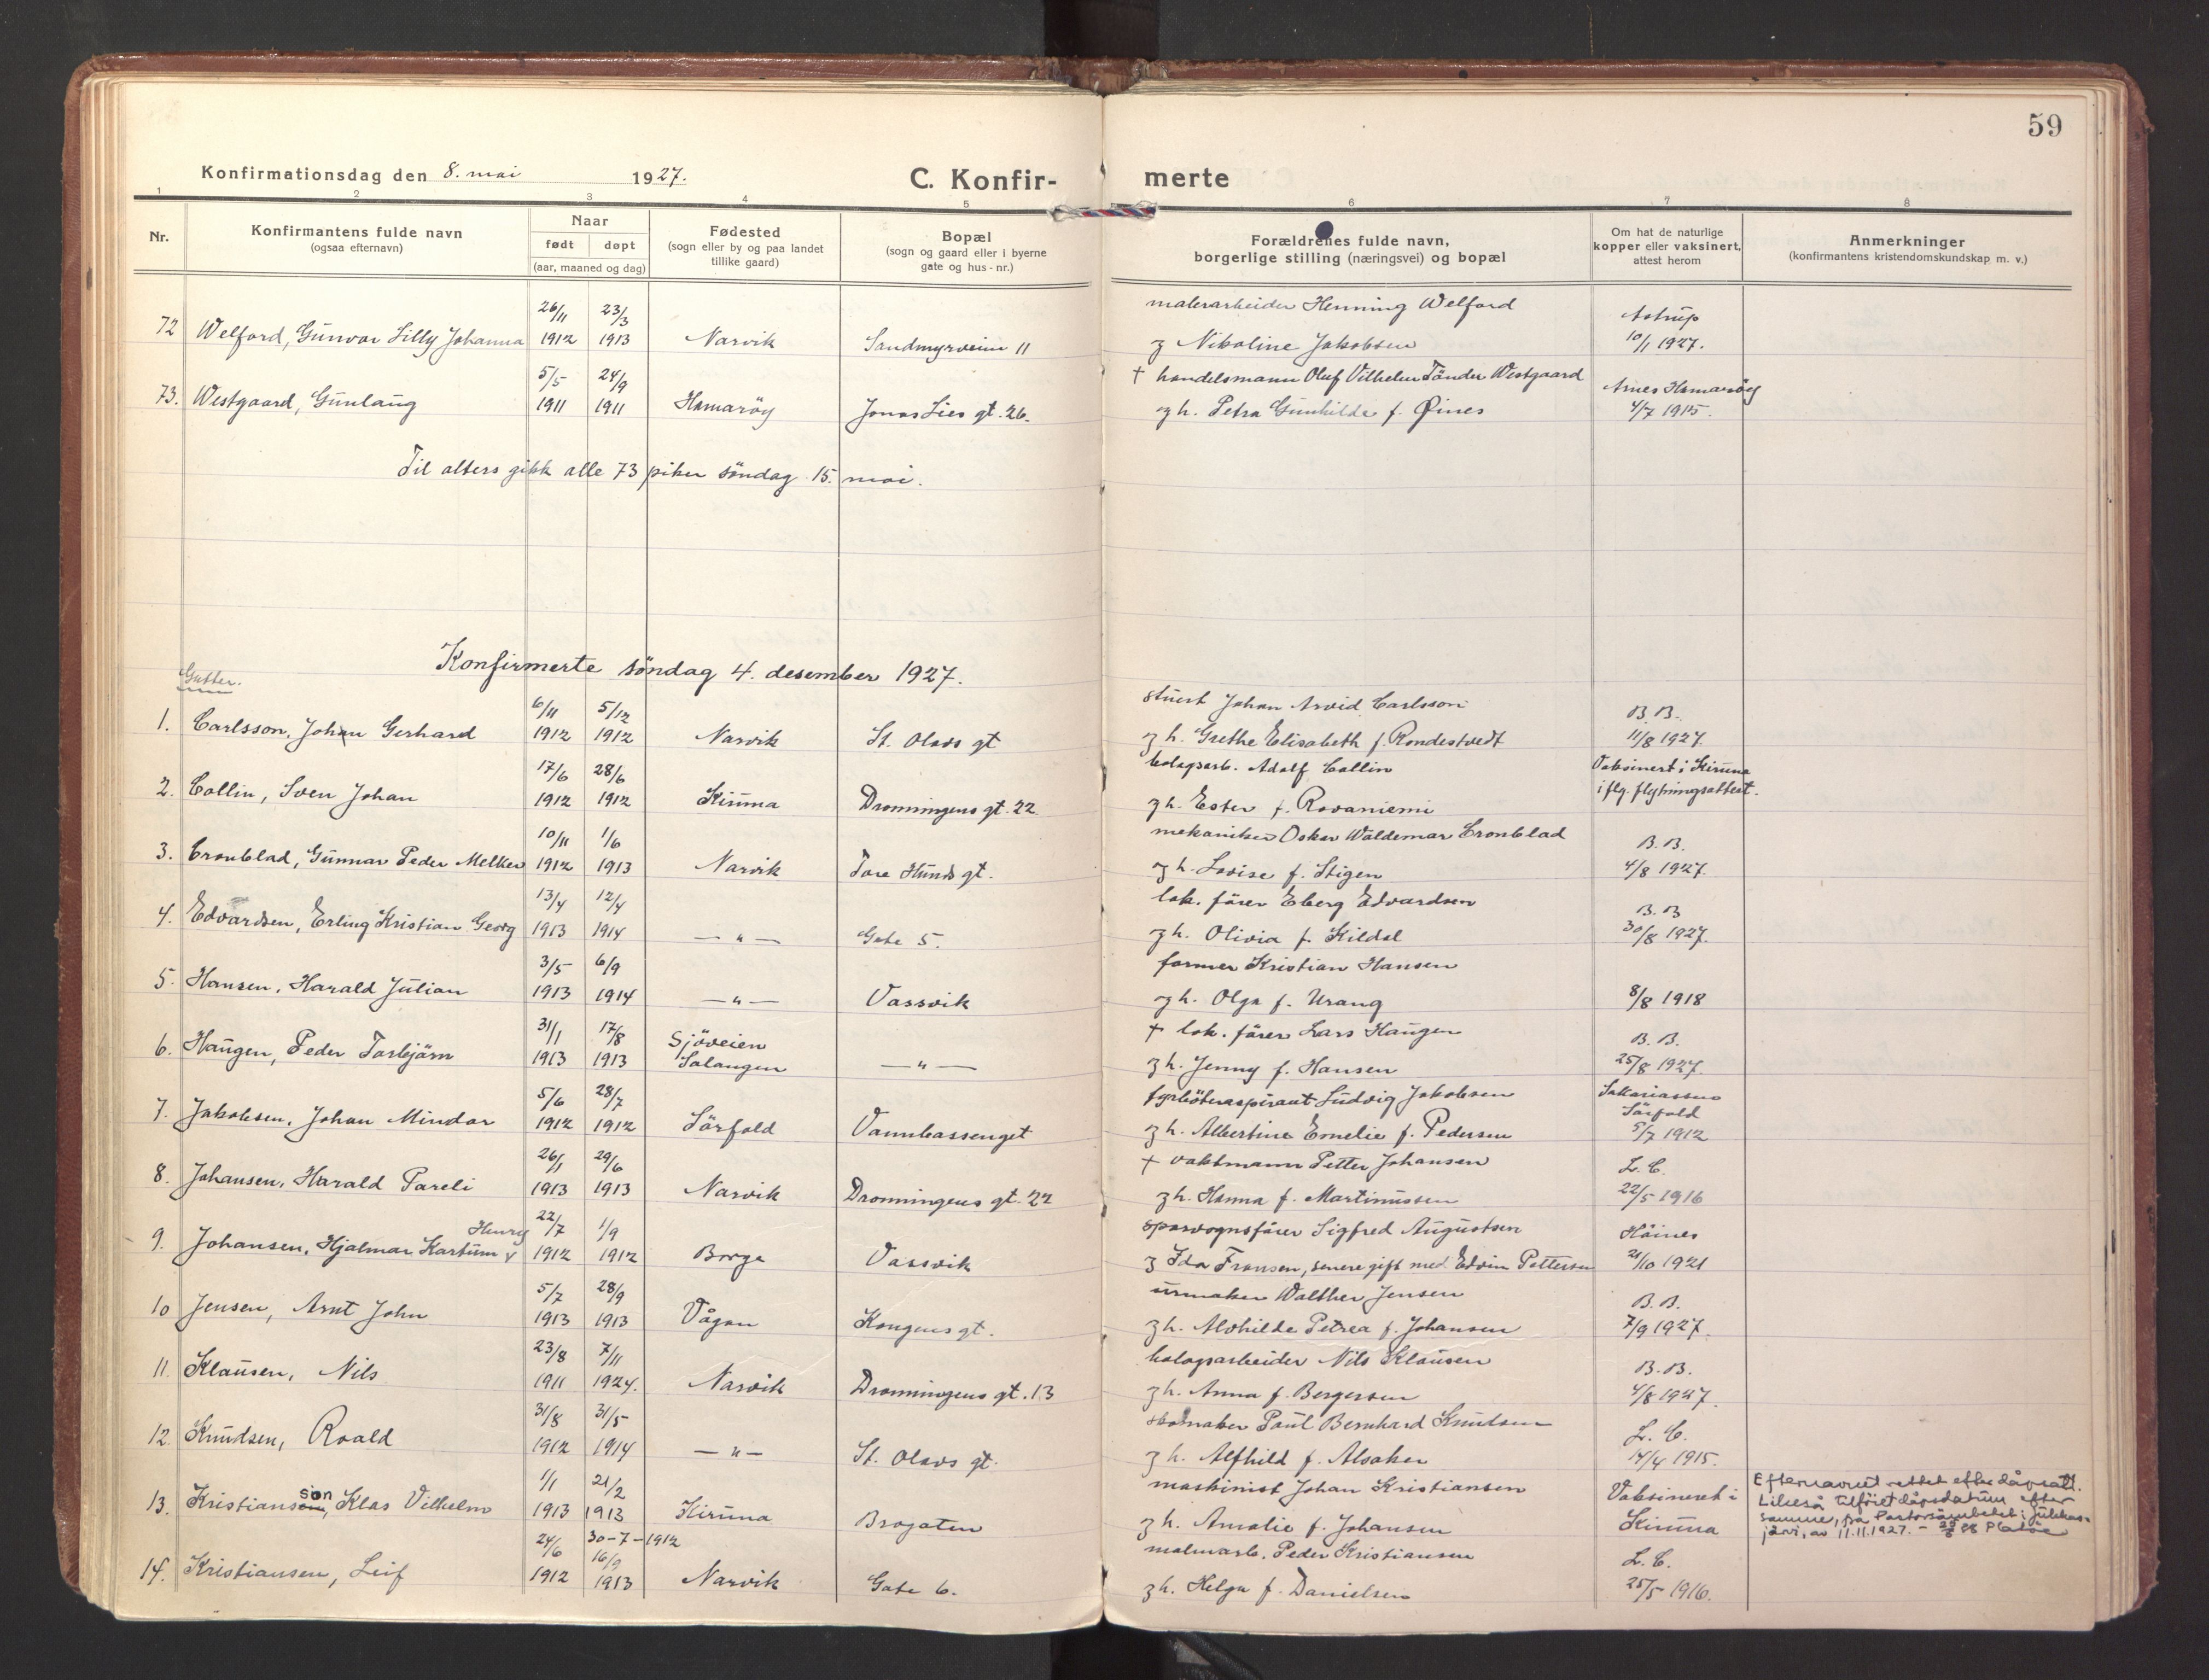 59
Konfirmationsdag den 8. mai 1927.
C. Konfir- merte
1 2 3 4 5 6 7 8
Nr.
Konfirmantens fulde navn
(ogsaa efternavn)
Naar
født døpt
(aar, maaned og dag)
Fødested
(sogn eller by og paa landet
tillike gaard)
Bopæl
(sogn og gaard eller i byerne
gate og hus-nr.)
Forældrenes fulde navn,
borgerlige stilling (næringsvei) og bopæl
Om hat de naturlige
kopper eller vaksinert,
attest herom
Anmerkninger
(konfirmantens kristendomskundskap m. v.)
26/11 23/3 malerarbeider Henning Welford Astrup
72 Welford, Gunvor Lilly Johanna 1912 1913 Narvik Sandmyrveien 11 og Nikoline Jakobsen 10/1 1927.
5/5 24/9 † handelsmann Oluf Vilhelm Tönder Westgaard Arnes Hamaröy
73. Westgaard, Gunlaug 1911 1911 Hamaröy Jonas Lies gt. 26. og h. Petra Gunhilda f. Öines 4/7 1915.
Til alters gikk alle 73 piker söndag 15. mai.
Konfirmerte söndag 4. desember 1927.
Gutter.
6/11 5/12 stuert Johan Arvid Carlsson B.B.
1. Carlsson, Johan Gerhard 1912 1912 Narvik St. Olavs gt og h. Grethe Elisabeth f. Rondestvedt 11/8 1927.
17/6 28/6 bolagsarb. Adolf Collin Vaksinert i Kiruna
2. Collin, Sven Johan 1912 1912 Kiruna Dronningens gt. 22. og h. Ester f. Rovaniemi i flg. flytningsattest.
10/11 1/6 mekaniker Oskar Waldemar Cronblad B.B.
3. Cronblad, Gunnar Peder Melker 1912 1913 Narvik Tore Hunds gt. og h. Lovise f. Stigen 4/8 1927.
13/4 12/4 lok. förer Eberg Edvardsen B.B
4. Edvardsen, Erling Kristian Georg 1913 1914 — " — Gate 5. og h. Olivia f. Kildal 30/8 1927.
3/5 6/9 former Kristian Hansen
5. Hansen, Harald Julian 1913 1914 — " — Vassvik og h. Olga f. Urang 8/8 1918
31/1 17/8 Sjöveien † lok. förer Lars Haugen B.B.
6. Haugen, Peder Torbjörn 1913 1913 Salangen — " — og h. Jenny f. Hansen 25/8 1927.
5/6 28/7 fyrböteraspirant Ludvig Jakobsen Sakariassen Sörfold
7. Jakobsen, Johan Mindor 1912 1912 Sörfold Vannbassenget og h. Albertine Emelie f. Pedersen 5/7 1912
26/1 29/6 † vaktmann Petter Johansen L.C.
8. Johansen, Harald Pareli 1913 1913 Narvik Dronningens gt. 22 og h. Hanna f. Martinussen 22/5 1916
Henry 22/7 1/9 sporvognsförer Sigfred Augustsen Håines
9. Johansen, Hjalmar Kartum 1912 1912 Borge Vassvik og Ida Fransen, senere gift med Edvin Pettersen 21/10 1921
5/7 28/9 urmaker Walther Jensen B.B.
10 Jensen, Arnt John 1913 1913 Vågan Kongens gt. og h. Alvhilde Petrea f. Johansen 7/9 1927.
23/8 7/11 bolagsarbeider Nils Klausen B.B.
11. Klausen, Nils 1911 1924. Narvik Dronningens gt. 13 og h. Anna f. Bergersen 4/8 1927.
31/8 31/5 skomaker Paul Bernhard Knudsen L.C.
12. Knudsen, Roald 1912 1914 — " — St. Olavs gt. og h. Alfhild f. Alsaker 14/4 1915.
1/1 21/2 maskinist Johan Kristiansen Vaksineret i
13. Kristianssion, Klas Vilhelm 1913 1913 Kiruna Brogaten og h. Amalie f. Johansen Kiruna
Efternavnet rettet efter dåpsatt.
Likeså tilföiet dåpsdatum efter
samme, fra Pastorsämbetet i Jukkas-
järvi, av 11.11.1927.
24/6 30-7-1912 16/9 malmarb. Peder Kristiansen L.C.
14. Kristiansen, Leif 1912 1913 Narvik Gate 6. og h. Helga f. Danielsen 25/5 1916.